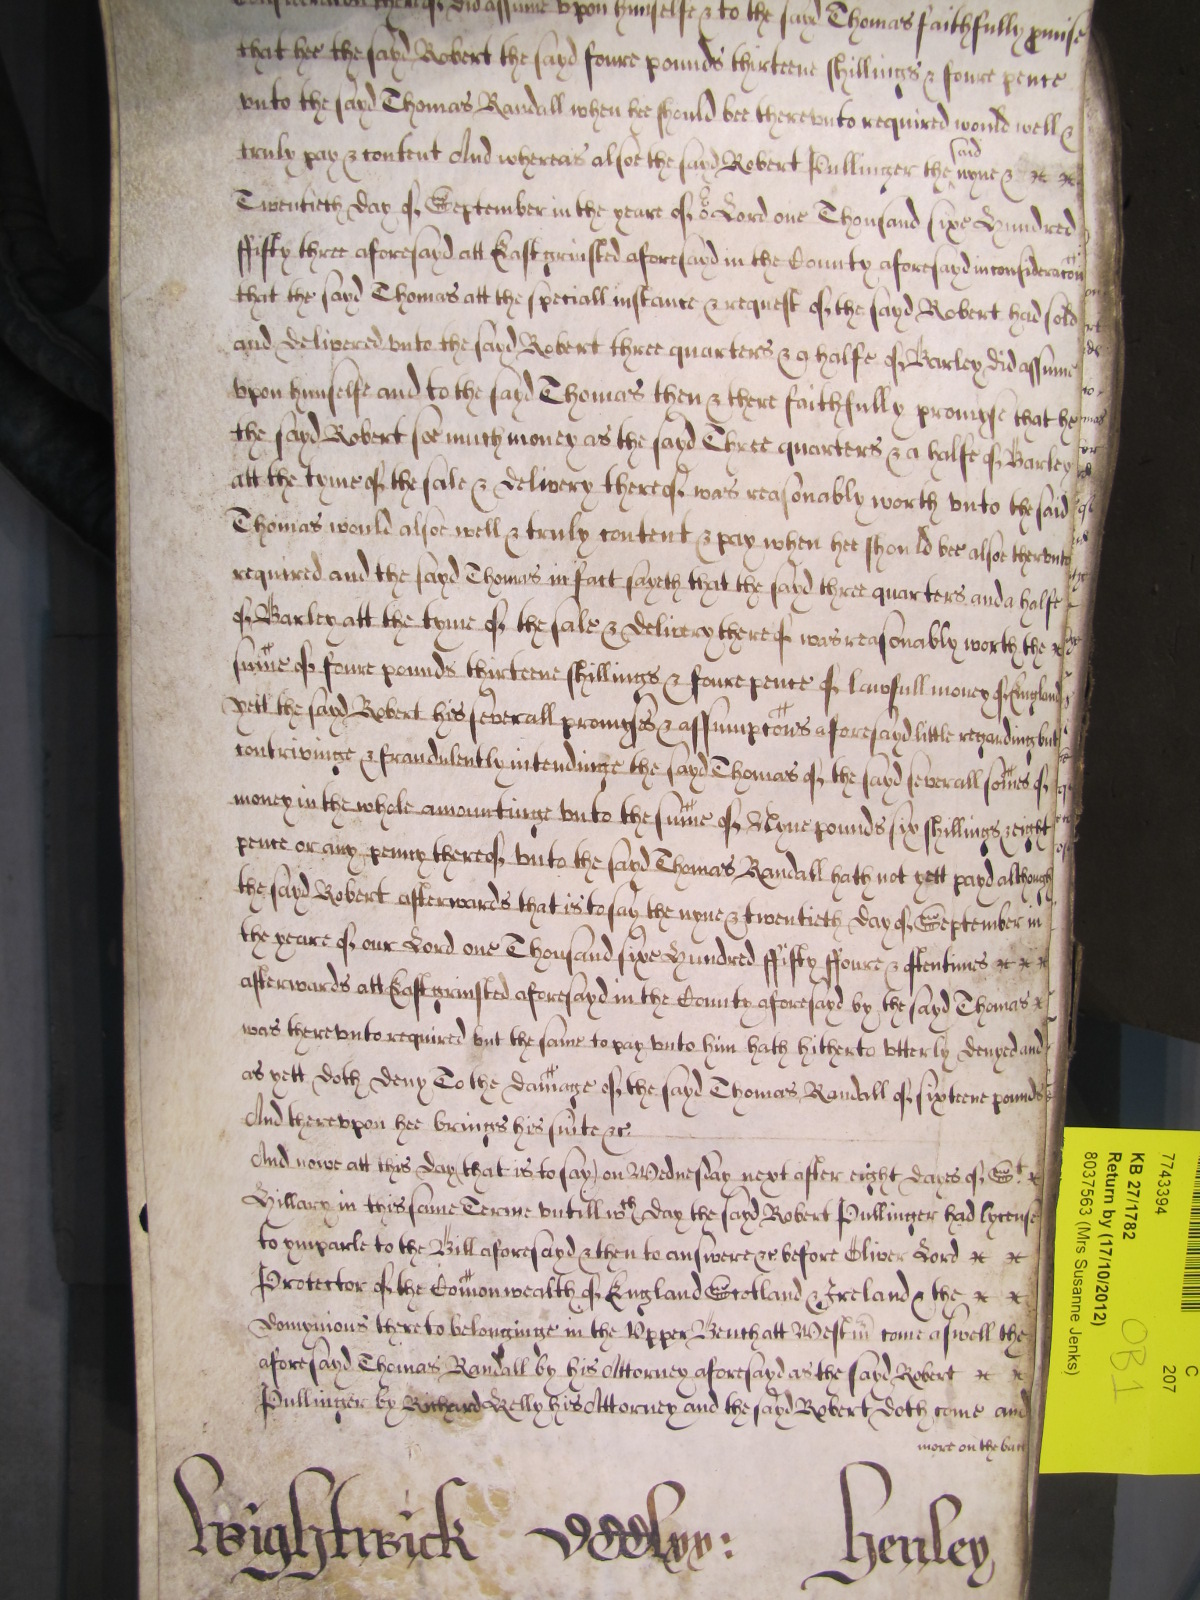 Consideracon thereof did assume vpon himselfe & to the sayd Thomas faithfully pmise
that hee the sayd Robert the sayd foure pounds thirteene shillings & foure pence
vnto the sayd Thomas Randall when hee should bee therevnto required would well &
truly pay & content And whereas alsoe the sayd Robert Pullinger the said nyne &
Twentieth day of September in the yeare of or Lord one Thousand sixe Hundred
ffifty three aforesayd att Eastgrinsted aforesayd in the County aforesayd in consideracon
that the sayd Thomas att the speciall instance & request of the sayd Robert had sold
and delivered vnto the sayd Robert three quarters & a halfe of Barley did assume
vpon himselfe and to the sayd Thomas then & there faithfully promyse that he
the sayd Robert soe much money as the sayd Three quarters & a halfe of Barley
att the tyme of the sale & delivery thereof was reasonably worth vnto the said
Thomas would alsoe well & truly content & pay when hee should bee alsoe therevnto
required and the sayd Thomas in fact sayeth that the sayd three quarters and a halfe
of Barley att the tyme of the sale & delivery thereof was reasonably worth the
sume of foure pounds thirteene shillings & foure pence of lawfull money of England
yett the sayd Robert his severall promyses & assumptcons aforesayd little regarding but
contrivinge & fraudulently intendinge the sayd Thomas of the sayd severall somes of
money in the whole amountinge vnto the sume of Nyne pounds six shillings & eight
pence or any penny thereof vnto the sayd Thomas Randall hath not yett payd although
the sayd Robert afterwards that is to say the nyne & twentieth day of September in
the yeare of our Lord one Thousand sixe Hundred ffifty ffoure & oftentimes
afterwards att Eastgrinsted aforesayd in the County aforesayd by the sayd Thomas
was therevnto required but the same to pay vnto him hath hitherto vtterly denyed and
as yett doth deny To the damage of the sayd Thomas Randall of sixteene pounds
And therevpon hee brings his suite &c.
And nowe att this day (that is to say) on Wednesday next after eight dayes of St.
Hillary in this same Terme vntill wch day the sayd Robert Pullinger had lycense
to ymparle to the Bill aforesayd & then to answere &c before Oliver Lord
Protector of the Comonwealth of England Scotland & Ireland & the
domynious thereto belonginge in the Vpper Bench att Westm come aswell the
aforesayd Thomas Randall by his Attorney aforesayd as the sayd Robert
Pullinger by Richard Kelly his Attorney and the sayd Robert doth come and
more on the back
Wightwick Henley
7743394
KB 27/1782
Return by (17/10/2012)
8037563 (Mrs Susanne Jenks)
C
207
OB1